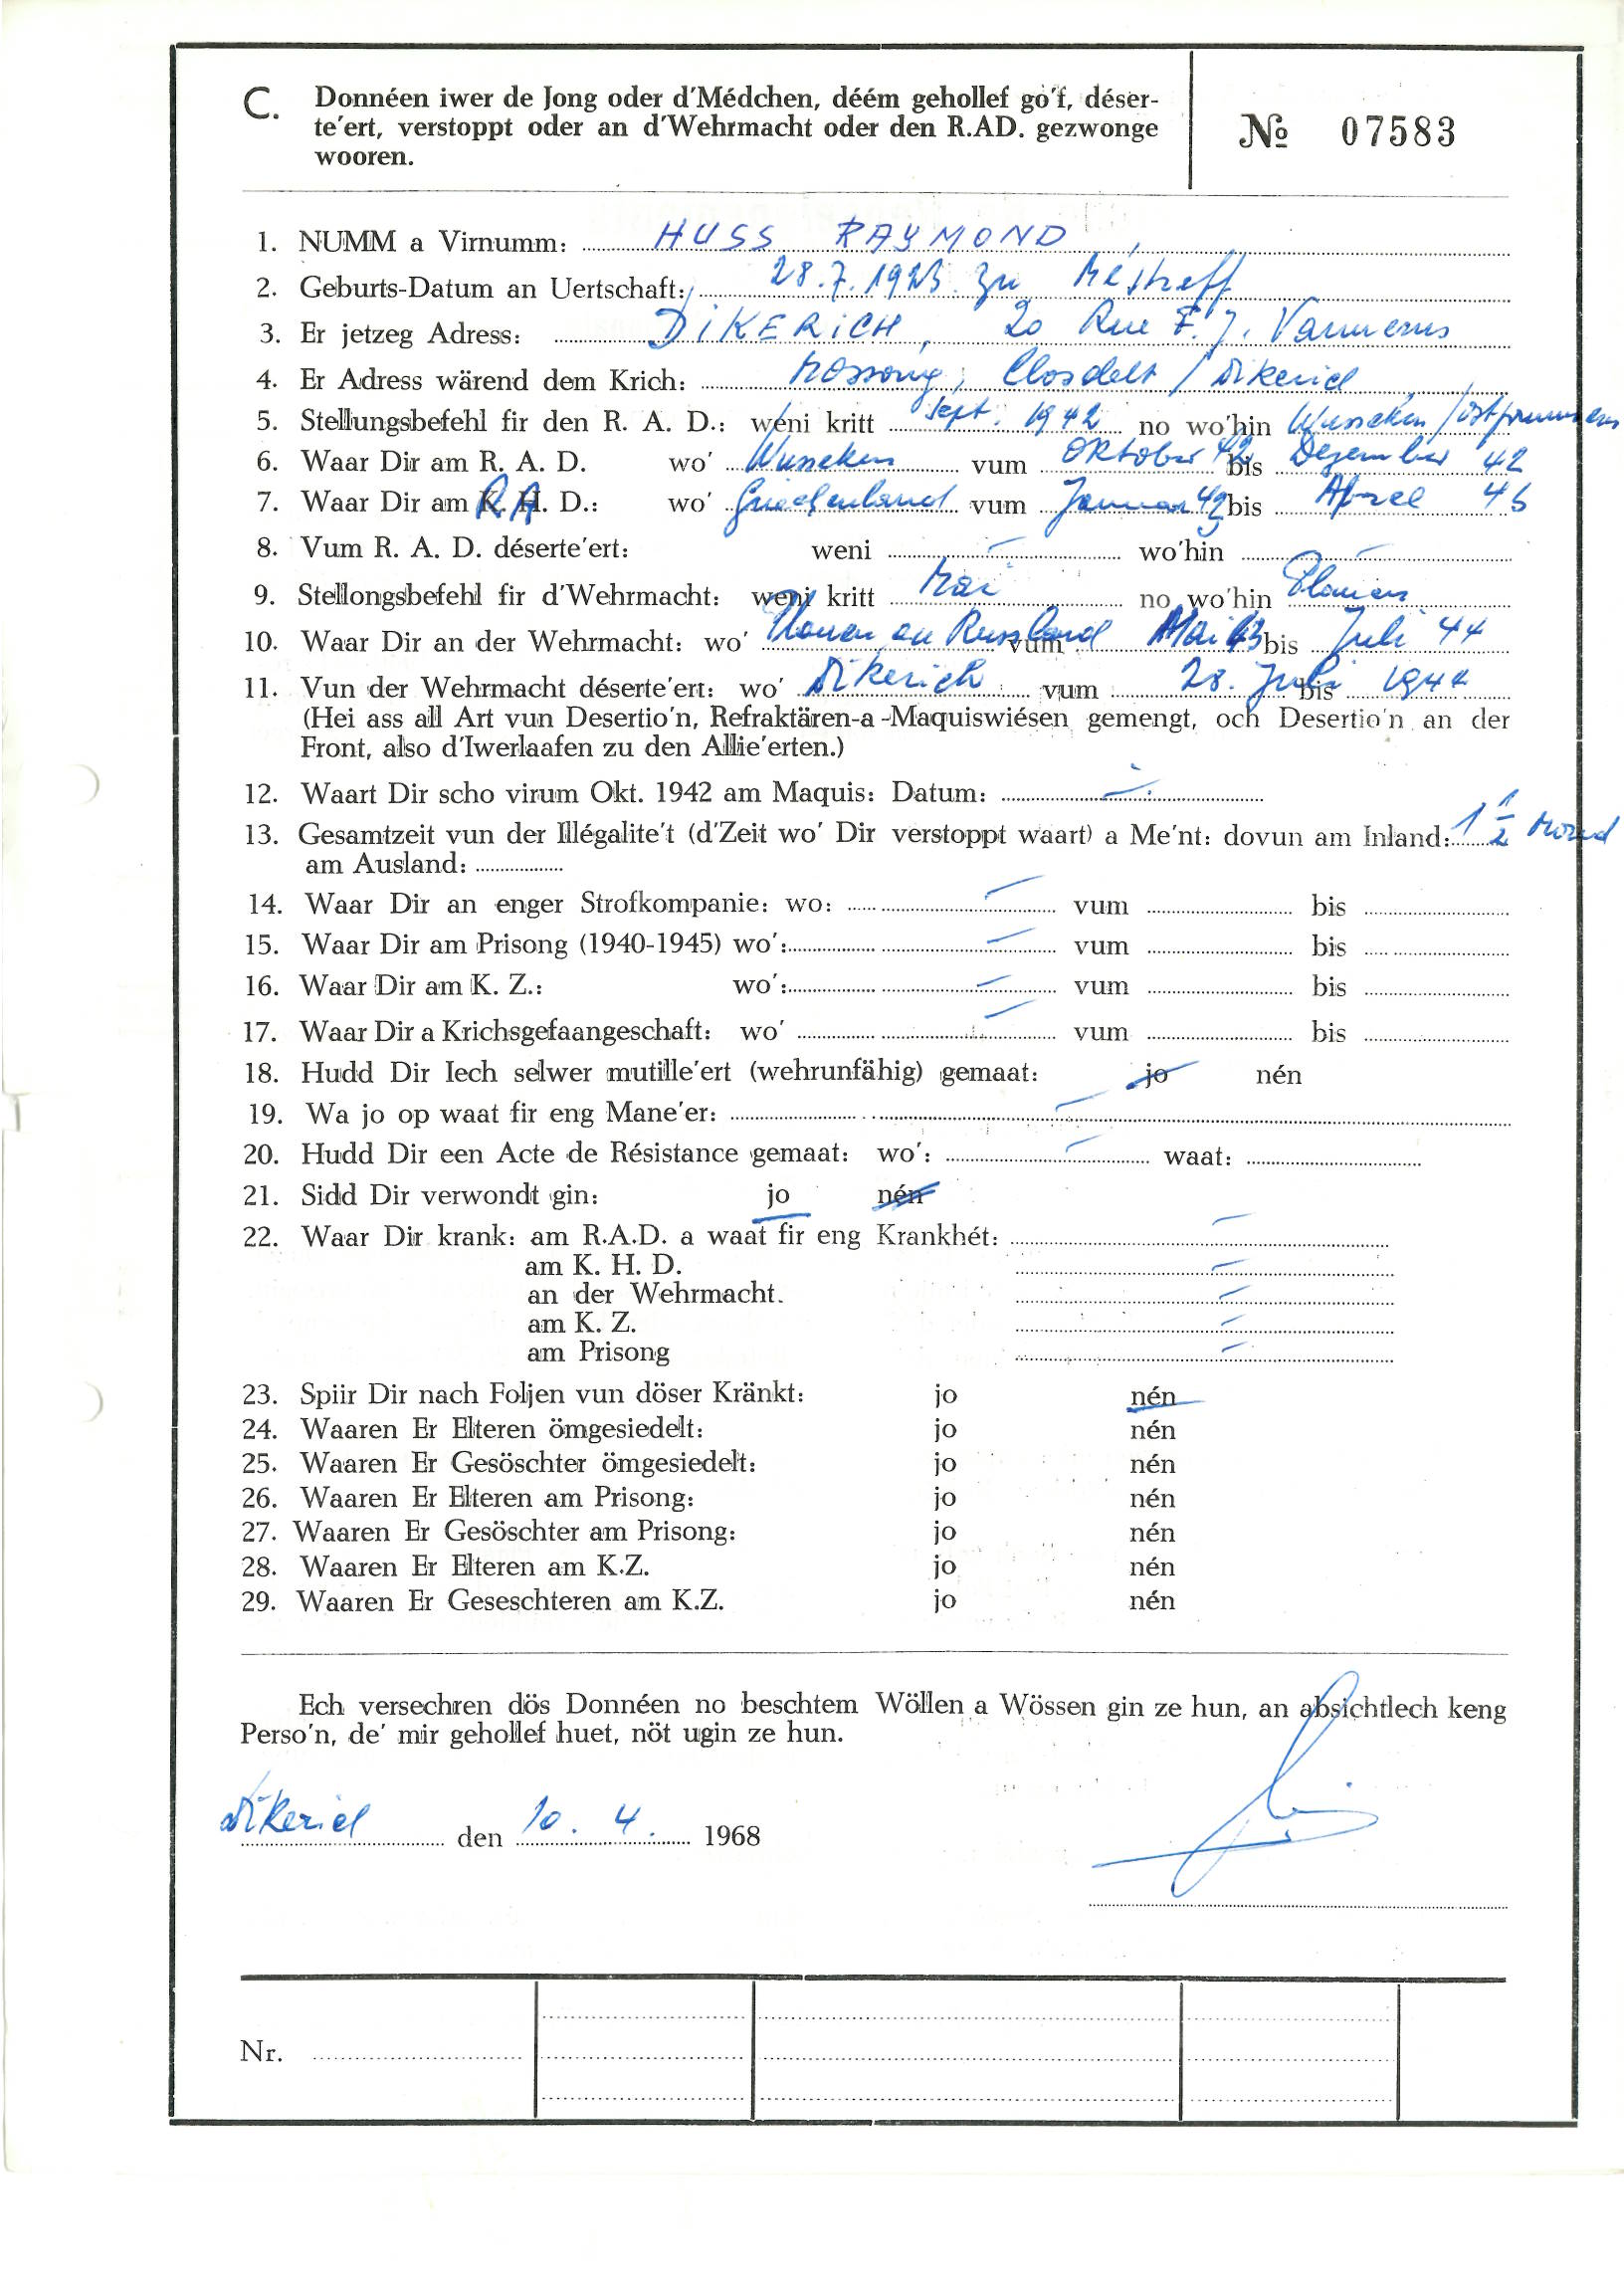 C. Donnéen iwer de Jong oder d'Médchen, déém gehollef go'f, déser-
te'ert, verstoppt oder an d'Wehrmacht oder den R.AD. gezwonge
wooren.
№ 07583
1. NUMM a Virnumm: HUSS RAYMOND
2. Geburts-Datum an Uertschaft: 28.7.1923 zu
3. Er jetzeg Adress: DiKERiCH, 20 Rue F. J. Vannerus
4. Er Adress wärend dem Krich: Closdelt / Dikerich
5. Stellungsbefehl fir den R. A. D.: weni kritt Sept. 1942 no wo'hin Wuscken / Ostpreussen
6. Waar Dir am R. A. D. wo' Wuscken vum Oktober 42 bis Dezember 42
7. Waar Dir am R. A. D.: wo' Griechenland vum Januar 43 bis 43
8. Vum R. A. D. déserte'ert: weni – wo'hin –
9. Stellongsbefehl fir d'Wehrmacht: weni kritt Mai no wo'hin Plauen
10. Waar Dir an der Wehrmacht: wo' Plauen an Russland vum Mai 43 bis Juli 44
11. Vun der Wehrmacht déserte'ert: wo' Dikerich vum 28. Juli bis 1944
(Hei ass all Art vun Desertio'n, Refraktären-a-Maquiswiésen gemengt, och Desertio'n an der
Front, also d'Iwerlaafen zu den Allie'erten.)
12. Waart Dir scho virum Okt. 1942 am Maquis: Datum: –
13. Gesamtzeit vun der Illégalite't (d'Zeit wo' Dir verstoppt waart) a Me'nt: dovun am Inland: 1 1/2 Mond
am Ausland:
14. Waar Dir an enger Strofkompanie: wo: – vum bis
15. Waar Dir am Prisong (1940-1945) wo': – vum bis
16. Waar Dir am K. Z.: wo': – vum bis
17. Waar Dir a Krichsgefaangeschaft: wo' – vum bis
18. Hudd Dir Iech selwer mutille'ert (wehrunfähig) gemaat: jo nén
19. Wa jo op waat fir eng Mane'er: –
20. Hudd Dir een Acte de Résistance gemaat: wo': – waat:
21. Sidd Dir verwondt gin: jo nén
22. Waar Dir krank: am R.A.D. a waat fir eng Krankhét: –
am K. H. D. –
an der Wehrmacht. –
am K. Z. –
am Prisong –
23. Spiir Dir nach Foljen vun döser Kränkt: jo nén
24. Waaren Er Elteren ömgesiedelt: jo nén
25. Waaren Er Gesöschter ömgesiedelt: jo nén
26. Waaren Er Elteren am Prisong: jo nén
27. Waaren Er Gesöschter am Prisong: jo nén
28. Waaren Er Elteren am K.Z. jo nén
29. Waaren Er Geseschteren am K.Z. jo nén
Ech versechren dös Donnéen no beschtem Wöllen a Wössen gin ze hun, an absichtlech keng
Perso'n, de' mir gehollef huet, nöt ugin ze hun.
Dikerich den 10. 4. 1968
Nr.